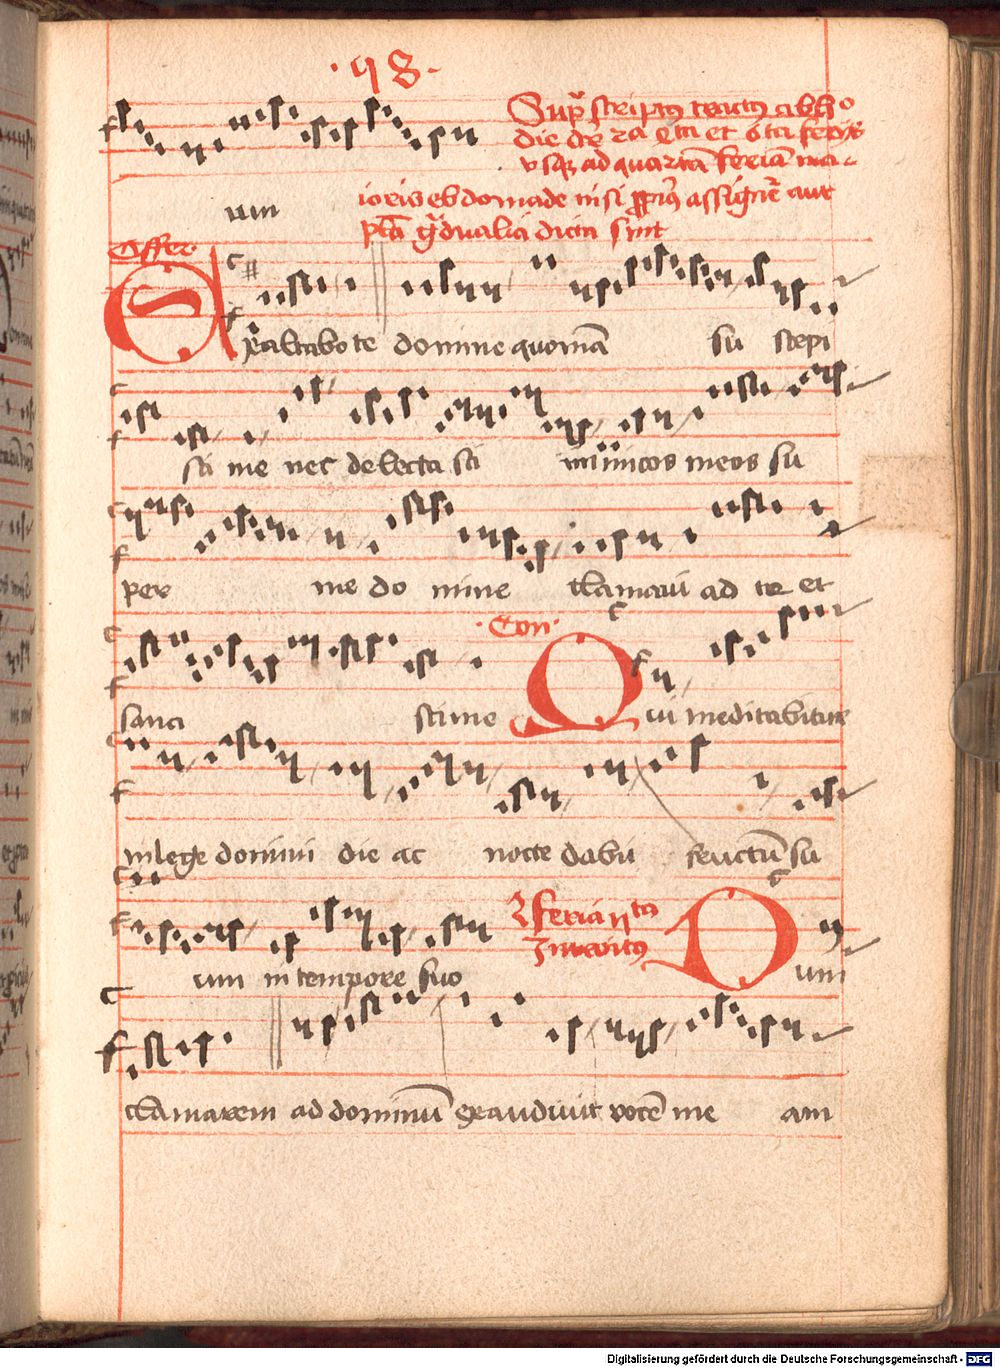 ·98·
Supͣ scriptus tractus ab hoc
die dr 2a 4ta et 6ta feriis
usqz ad quartā feriā ma-
um ioris ebdomade nisi ꝓprius assignet᷑ aut
gͣdualia dicta sint
Offer
Exaltabo te domine quoniā su scepi
sti me nec delecta sti inimicos meos su
per me do mine clamavi ad te et
sana sti me Con Qui meditabitur
in lege domini die ac nocte dabit fructū su
um in tempore suo feria Introitus Dum
clamarem ad dominū exaudivit vocē me am
Digitalisierung gefördert durch die Deutsche Forschungsgemeinschaft - DFG